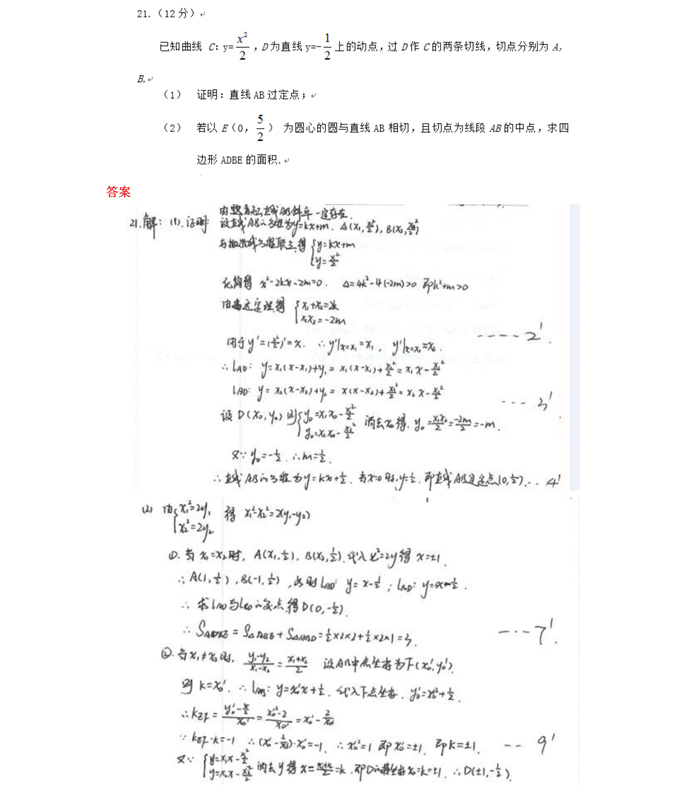 21.（12分）
已知曲线 C：y=x²/2，D为直线y=-1/2上的动点，过D作C的两条切线，切点分别为A，
B.
（1） 证明：直线AB过定点；
（2） 若以E（0，5/2）为圆心的圆与直线AB相切，且切点为线段AB的中点，求四
边形ADBE的面积.
答案
由题意知直线AB斜率一定存在.
21.解：(1).证明：设直线AB的方程为y=kx+m. A(x₁,x₁²/2), B(x₂,x₂²/2)
与抛物线方程联立得 {y=kx+m
y=x²/2
化简得 x²-2kx-2m=0. Δ=4k²-4(-2m)>0 即k²+m>0
由韦达定理得 {x₁+x₂=2k
x₁x₂=-2m
由于y'=(x²/2)'=x. ∴y'|x=x₁=x₁, y'|x=x₂=x₂. ----2'
∴lAD: y=x₁(x-x₁)+y₁=x₁(x-x₁)+x₁²/2=x₁x-x₁²/2
lBD: y=x₂(x-x₂)+y₂=x₂(x-x₂)+x₂²/2=x₂x-x₂²/2 ---3'
设D(x₀,y₀) 则{y₀=x₁x₀-x₁²/2
y₀=x₂x₀-x₂²/2 消去x₀得. y₀=x₁x₂/2=-2m/2=-m.
又∵y₀=-1/2. ∴m=1/2.
∴直线AB的方程为y=kx+1/2. 当x=0时,y=1/2. 即直线AB过定点(0,1/2). ..4'
(2) 由{x₁²=2y₁
x₂²=2y₂ 得 x₁²-x₂²=2(y₁-y₂)
①.当x₁=x₂时, A(x₁,1/2), B(x₂,1/2).代入x²=2y得 x=±1.
∴A(1,1/2), B(-1,1/2), 此时lAD: y=x-1/2; lBD: y=-x-1/2.
∴求lAD与lBD的交点得D(0,-1/2).
∴SADBE=SΔABE+SΔABD=1/2×2×2+1/2×2×1=3. ---7'
②.当x₁≠x₂时, (y₁-y₂)/(x₁-x₂)=(x₁+x₂)/2 设AB中点坐标为F(x₀',y₀').
则k=x₀'. ∴lAB: y=x₀'x+1/2. 代入F点坐标. y₀'=x₀'²+1/2.
∴kEF=(y₀'-5/2)/x₀'=(x₀'²-2)/x₀'=x₀'-2/x₀'
∵kEF·k=-1 ∴(x₀'-2/x₀')·x₀'=-1. ∴x₀'²=1 即x₀'=±1. 即k=±1. --9'
又∵{y=x₁x-x₁²/2
y=x₂x-x₂²/2 消去y得 x=(x₁+x₂)/2=k. 即D的横坐标x₀=k=±1. ∴D(±1,-1/2).